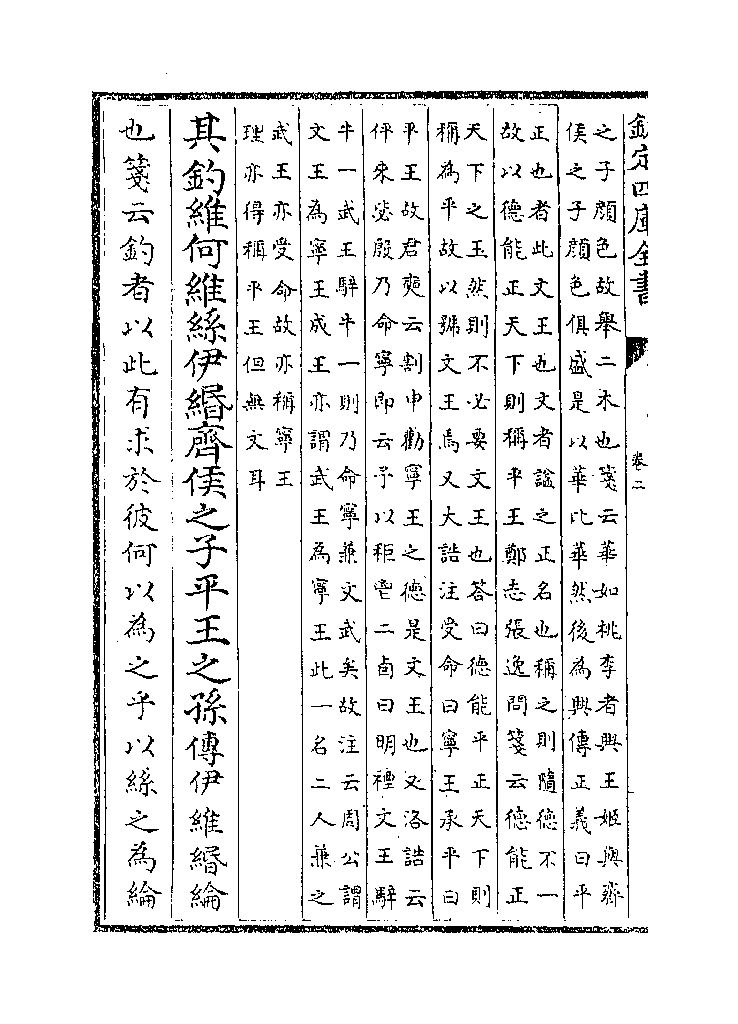 欽定四庫全書
卷二
之子顔色故舉二木也箋云華如桃李者興王姬與齊
侯之子顔色俱盛是以華比華然後為興傳正義曰平
正也者此文王也文者諡之正名也稱之則隨德不一
故以德能正天下則稱平王鄭志張逸問箋云德能正
天下之王然則不必要文王也答曰德能平正天下則
稱為平故以號文王焉又大誥注受命曰寧王承平曰
平王故君奭云割申勸寧王之德是文王也又洛誥云
伻來毖殷乃命寧即云予以秬鬯二卣曰明禋文王騂
牛一武王騂牛一則乃命寧兼文武矣故注云周公謂
文王為寧王成王亦謂武王為寧王此一名二人兼之
武王亦受命故亦稱寧王
理亦得稱平王但無文耳
其釣維何維絲伊緡齊侯之子平王之孫傳伊維緡綸
也箋云釣者以此有求於彼何以為之乎以絲之為綸